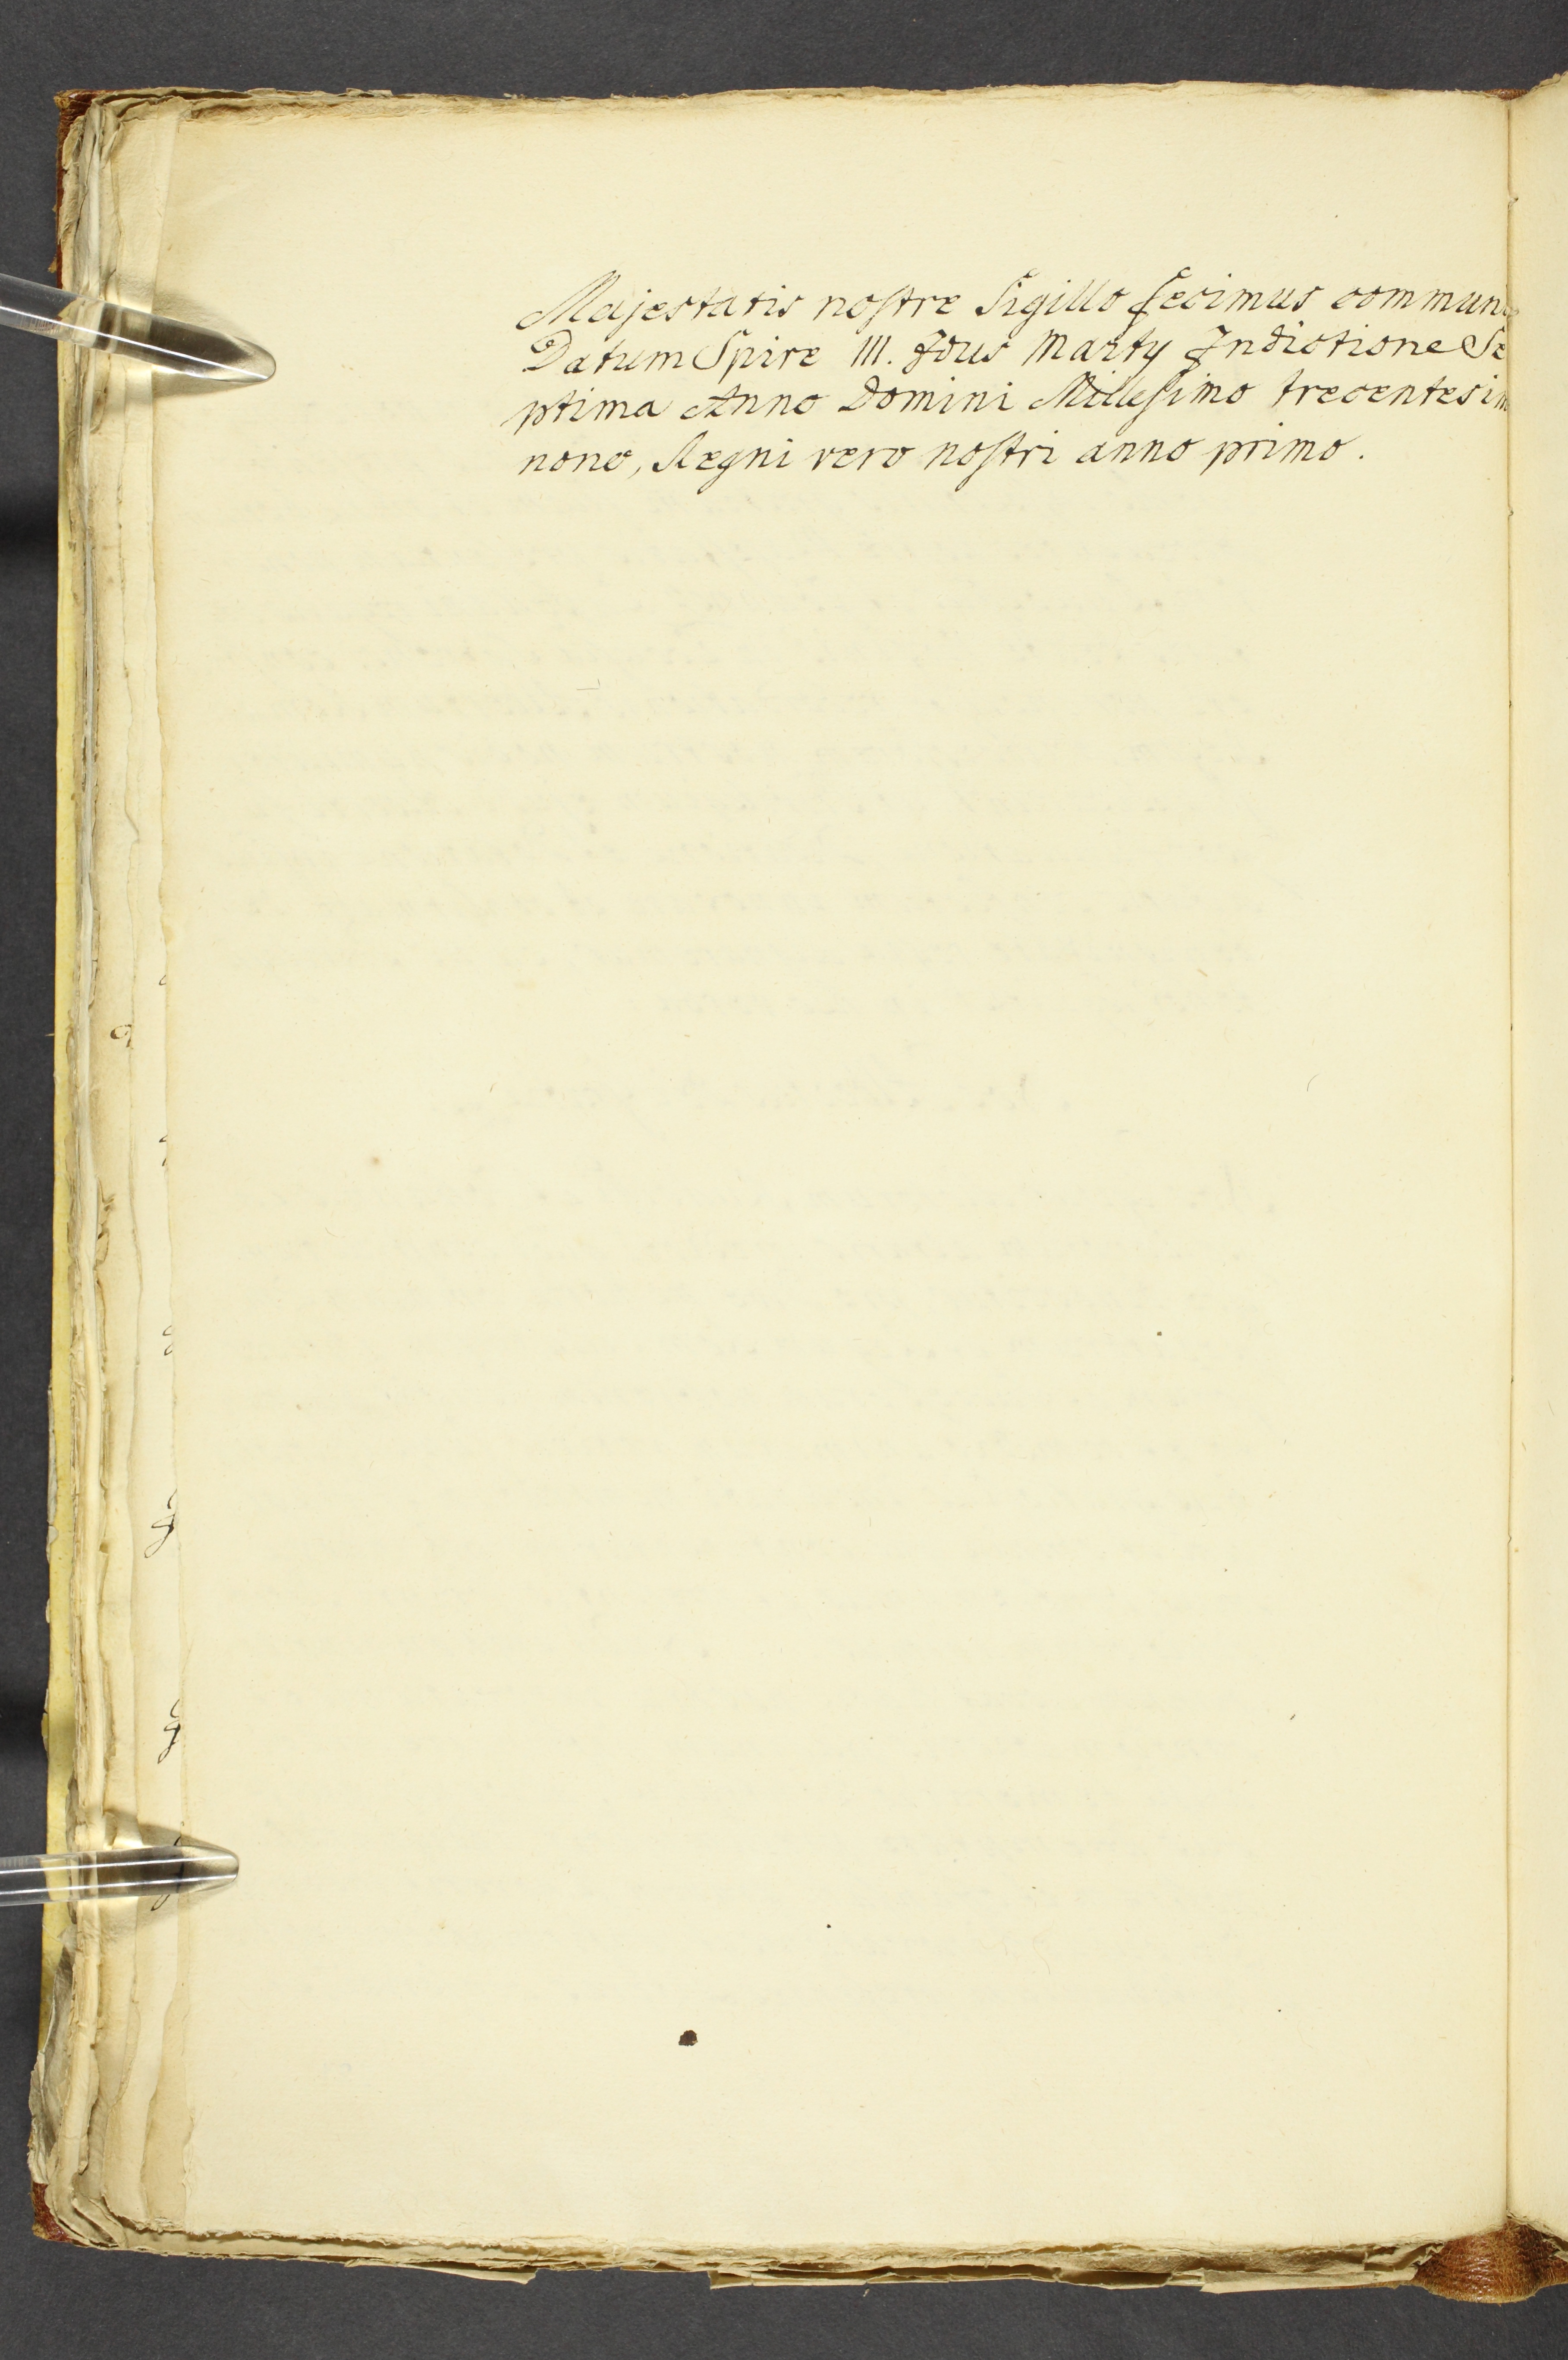 Majestatis nostre Sigillo fecimus commun
Datum Spire III. Idus Martÿ Indictione Se
ptima Anno Domini Millesimo trecentesim
nono, Regni vero nostri anno primo.